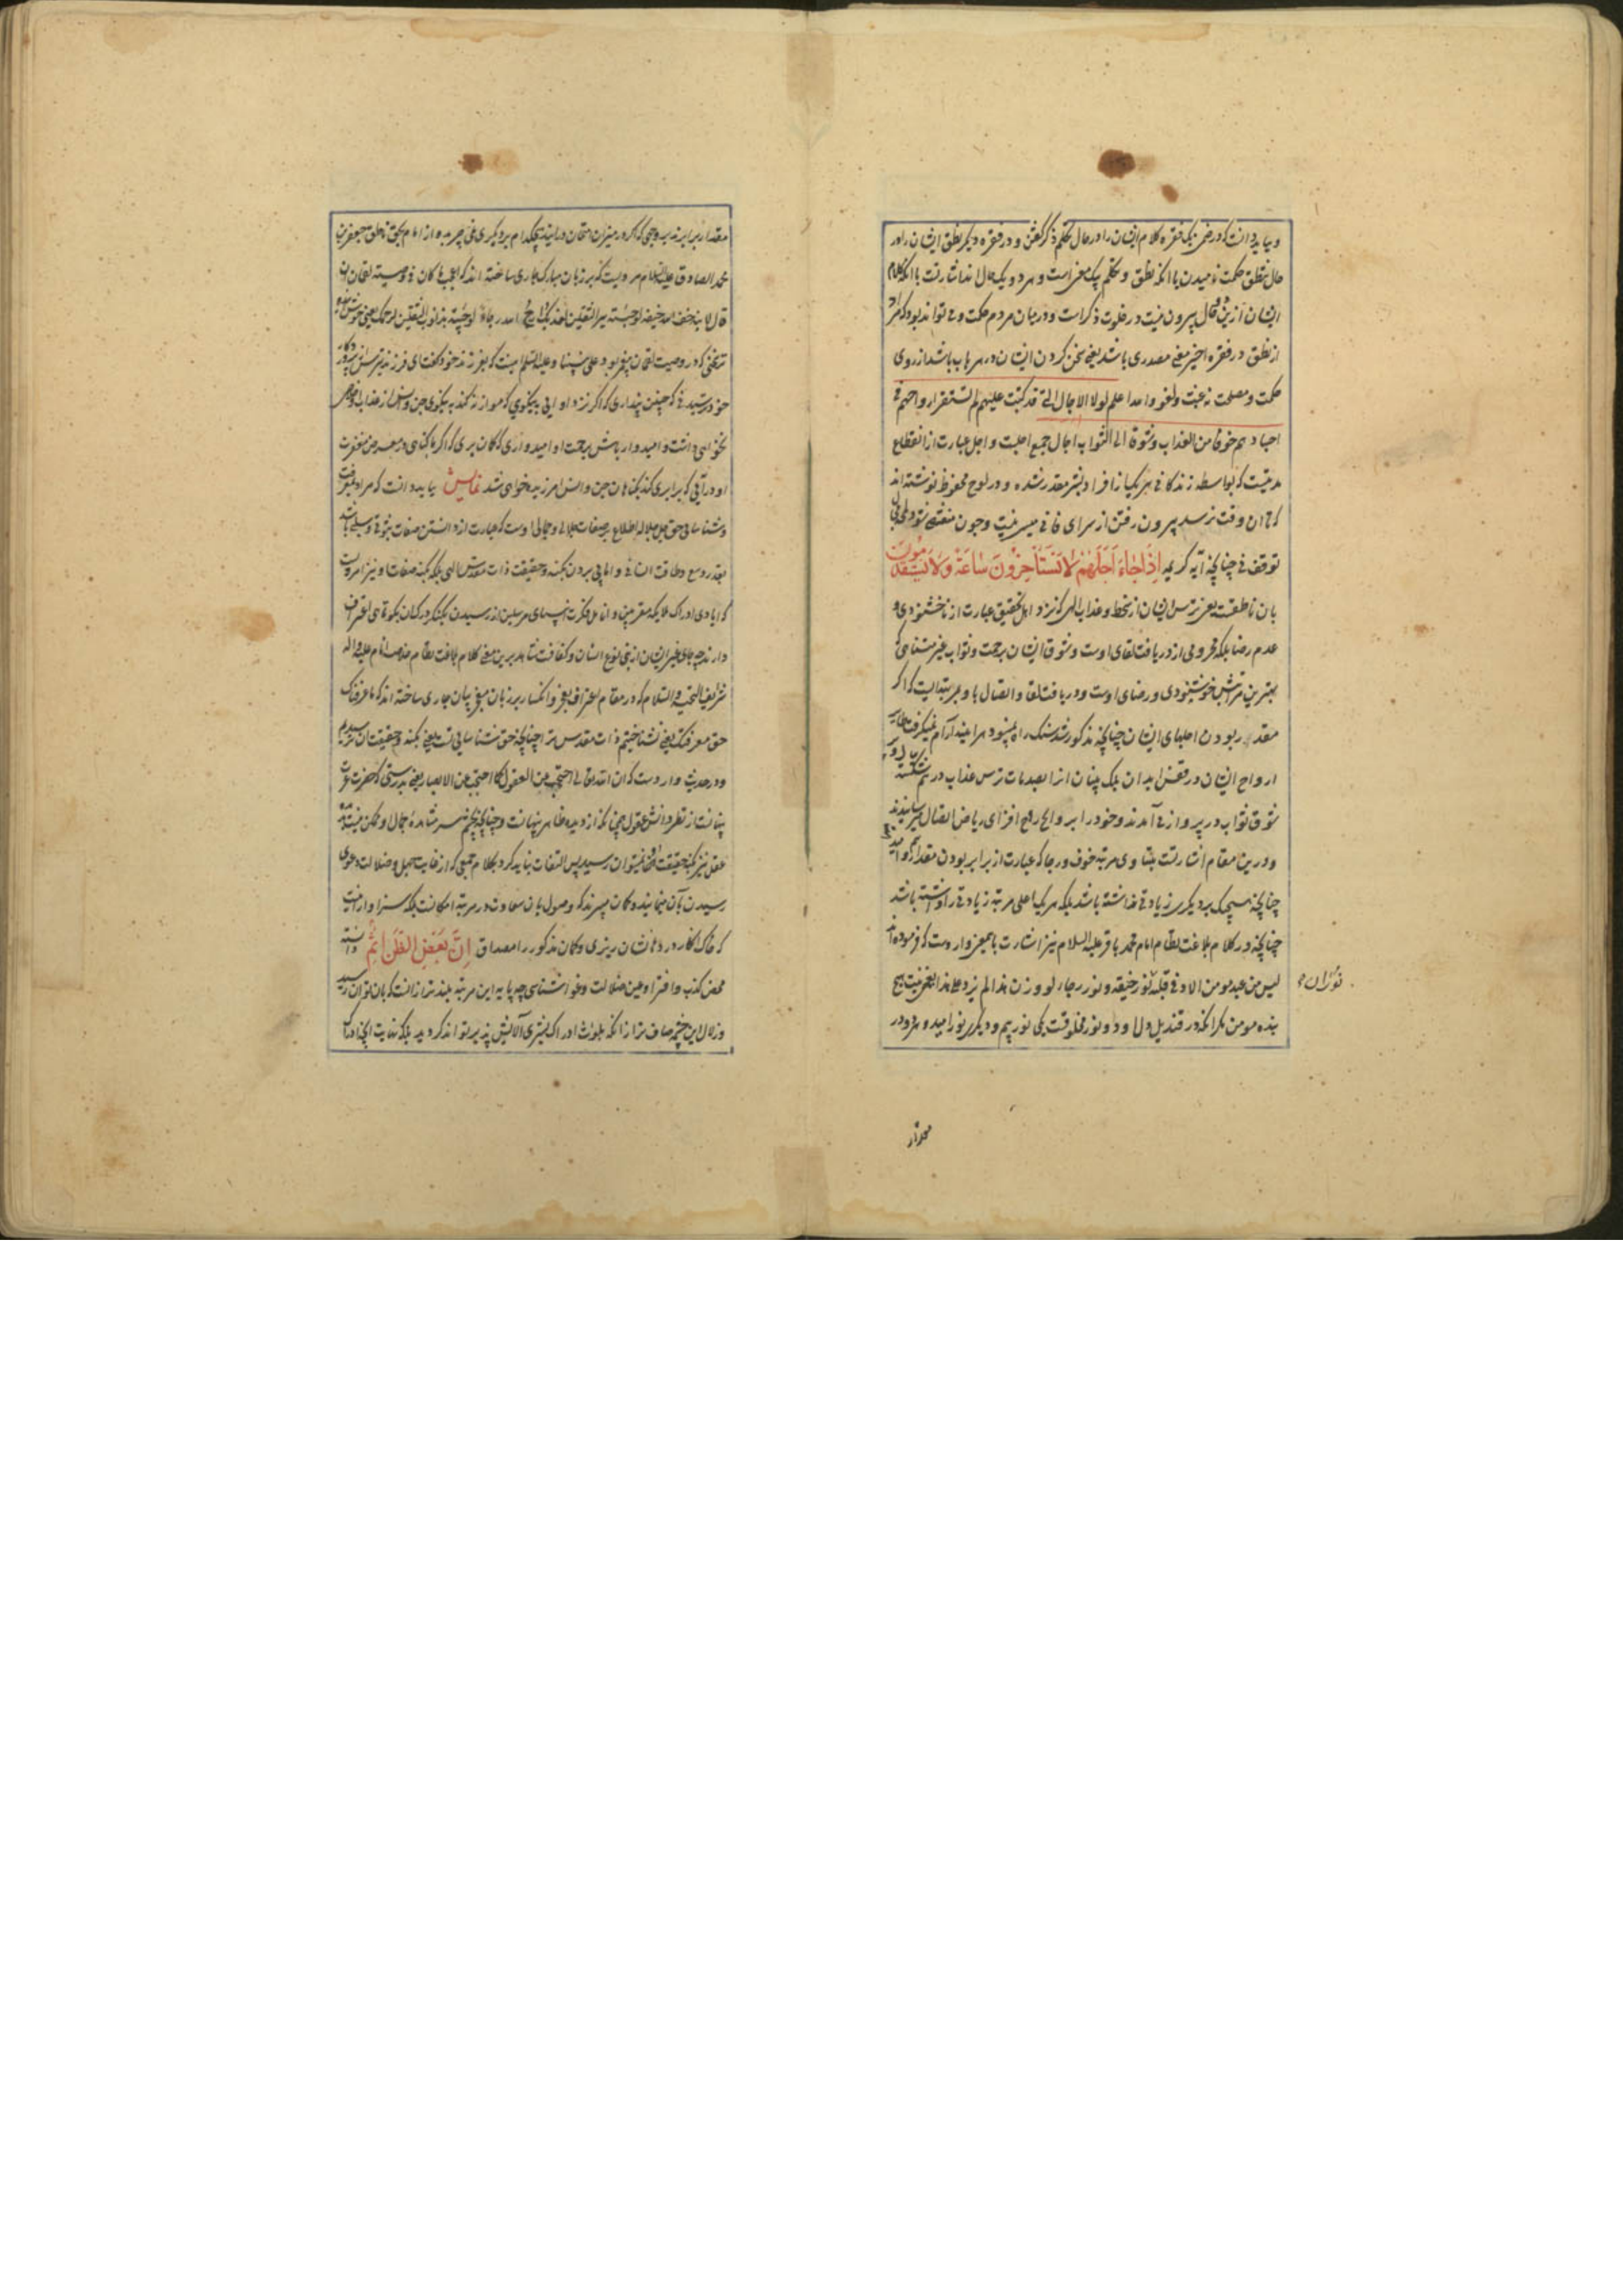 و بباید دانست که در ضمن یک فقره کلام ایشان را در حال تکلم ذکر گفتن و در فقره دیگر نطق ایشان را در
حال نطق حکمت نامیدن با آنکه نطق و تکلم بیک معنی است و هر دو یک حال اند اشارتست با آنکه کلام
ایشان ازین دو حال بیرون نیست در خلوت ذکر است و در میان مردم حکمت و می تواند بود که مراد
از نطق در فقره اخیر معنی مصدری باشد یعنی سخن کردن ایشان در هر باب باشد از روی
حکمت و مصلحت نه عبث و لغو و الله اعلم لولا الاجال التی قد کتبت علیهم لم تستقر ارواحهم فی
اجسادهم خوفا من العذاب و شوقا الی الثواب اجال جمع اجلست و اجل عبارت از انقطاع
مدتیست که بواسطه زندگانی هر یک از افراد بشر مقدر شده و در لوح محفوظ نوشته اند
که تا آن وقت نرسد بیرون رفتن از سرای فانی میسر نیست و چون منقضی شود
توقف نی چنانچه آیه کریمه اِذَا جَاءَ اَجَلُهُمْ لَا یَسْتَأْخِرُونَ سَاعَةً وَلَا یَسْتَقْدِمُونَ
بآن ناطقست یعنی ترس ایشان از سخط و عذاب الهی که نزد اهل تحقیق عبارت از ناخشنودی و
عدم رضا بلکه محرومی از دریافت لقای اوست و شوق ایشان برحمت و ثواب غیر متناهی که
بهترین مراتبش خوشنودی و رضای اوست و دریافت لقا و اتصال باو بمرتبه ایست که اگر
مقدر بودن اجلهای ایشان چنانچه مذکور شد سنگ راه نمیبود هر آینه آرام نمیگرفت
ارواح ایشان در قفس ابدان بلک بنیان از صدمات ترس عذاب در هم شکسته
شوق ثواب در پرواز می آمدند و خود را بروایح روح افزای ریاض اتصال میرسانیدند
و درین مقام اشارتست بتساوی مرتبه خوف و رجا که عبارت از برابر بودن مقدار بیم و امید
چنانچه هیچیک بر دیگری زیادتی نداشته باشد بلکه هر یک اعلی مرتبه زیادتی را داشته باشد
چنانچه در کلام بلاغت نظام امام محمد باقر علیه السلام نیز اشارت باین معنی وارد است که فرموده اند
لیس من عبد مومن الا و فی قلبه نور خیفه و نور رجاء لو وزن هذا لم یزد علی هذا یعنی نیست هیچ
بنده مومن مگر آنکه در قندیل دل او دو نور مخلوقست یکی نور بیم و دیگری نور امید و هر دو در
نوران
مقدار
مقدار برابرند بروجهی که اگر در میزان امتحان در آیند هیچکدام بر دیگری نمی چربد و از امام بحق ناطق جعفر بن
محمد الصادق علیه السلام مرویست که بر زبان مبارک جاری ساخته اند که اعجب ما کان فی وصیة لقمان ان
قال لابنه خف الله خیفة لو جئته ببر الثقلین لعذبک و ارج الله رجاء لو جئته بذنوب الثقلین لرحمک یعنی
سخنی که در وصیت لقمان پیغمبر بود علی نبینا و علیه السلام اینست که بفرزند خود گفت ای فرزند بترس از پروردگار
خود ترسیدنی که چنین پنداری که اگر نزد او آیی به نیکویی که موازنه کند به نیکوی جن و انس از عذاب او خلاص
نخواهی داشت و امیدوار باش برحمت او امیدواری که گمان بری که اگر با گناهی در معرض مغفرت
او در آیی که برابری کند بگناهان جن و انس آمرزیده خواهی شد نمایش بباید دانست که مراد بمعرفت
و شناسایی حق جل جلاله اطلاع بر صفات جلالی و جمالی اوست که عبارت از دانستن صفات ثبوتی و سلبی باشد
بقدر وسع و طاقت انسانی و اما پی بردن بکنه و حقیقت ذات مقدس الهی بلکه بکنه صفات او نیز امریست
که ایادی ادراک ملایکه مقربین و انامل فکرت انبیای مرسلین از رسیدن بکنگره آن بکوتاهی اعتراف
دارند چه جای غیر ایشان از بنی نوع انسان و کفافست شاهد برین معنی کلام بلاغت نظام خیر الانام علیه و آله
شرایف التحیة و السلام که در مقام اعتراف بعجز و انکسار بر زبان معجز بیان جاری ساخته اند که ما عرفناک
حق معرفتک یعنی نشناختیم ذات مقدس ترا چنانچه حق شناسایی تست یعنی بکنه و حقیقت آن نرسیدیم
و در حدیث وارد است که ان الله تعالی احتجب عن العقول کما احتجب عن الابصار یعنی بدرستی که حضرت عزت
پنهانست از نظر دانش عقول چنانکه از دیده ظاهر پنهانست و چنانچه بچشم سر مشاهده جمال او ممکن نیست بدیده
عقل نیز بکنه حقیقت او نمیتوان رسید پس التفات نباید کرد بکلام جمعی که از غایت جهل و ضلالت دعوی
رسیدن بآن مینمایند و گمان میبرند که وصول بآن سعادت در مرتبه امکانست بلکه سزاوار آنست
که خاک انکار در دهانشان ریزی و گمان مذکور را مصداق اِنَّ بَعْضَ الظَّنِّ اِثْمٌ دانسته
محض کذب و افترا و عین ضلالت و خدا ناشناسی چه پایه این مرتبه بلندتر از آنست که بآن توان رسید
و زلال این چشمه صاف تر از آنکه بلوث ادراک بشری آلایش پذیر تواند گردید بلکه نهایت آنچه ادراک